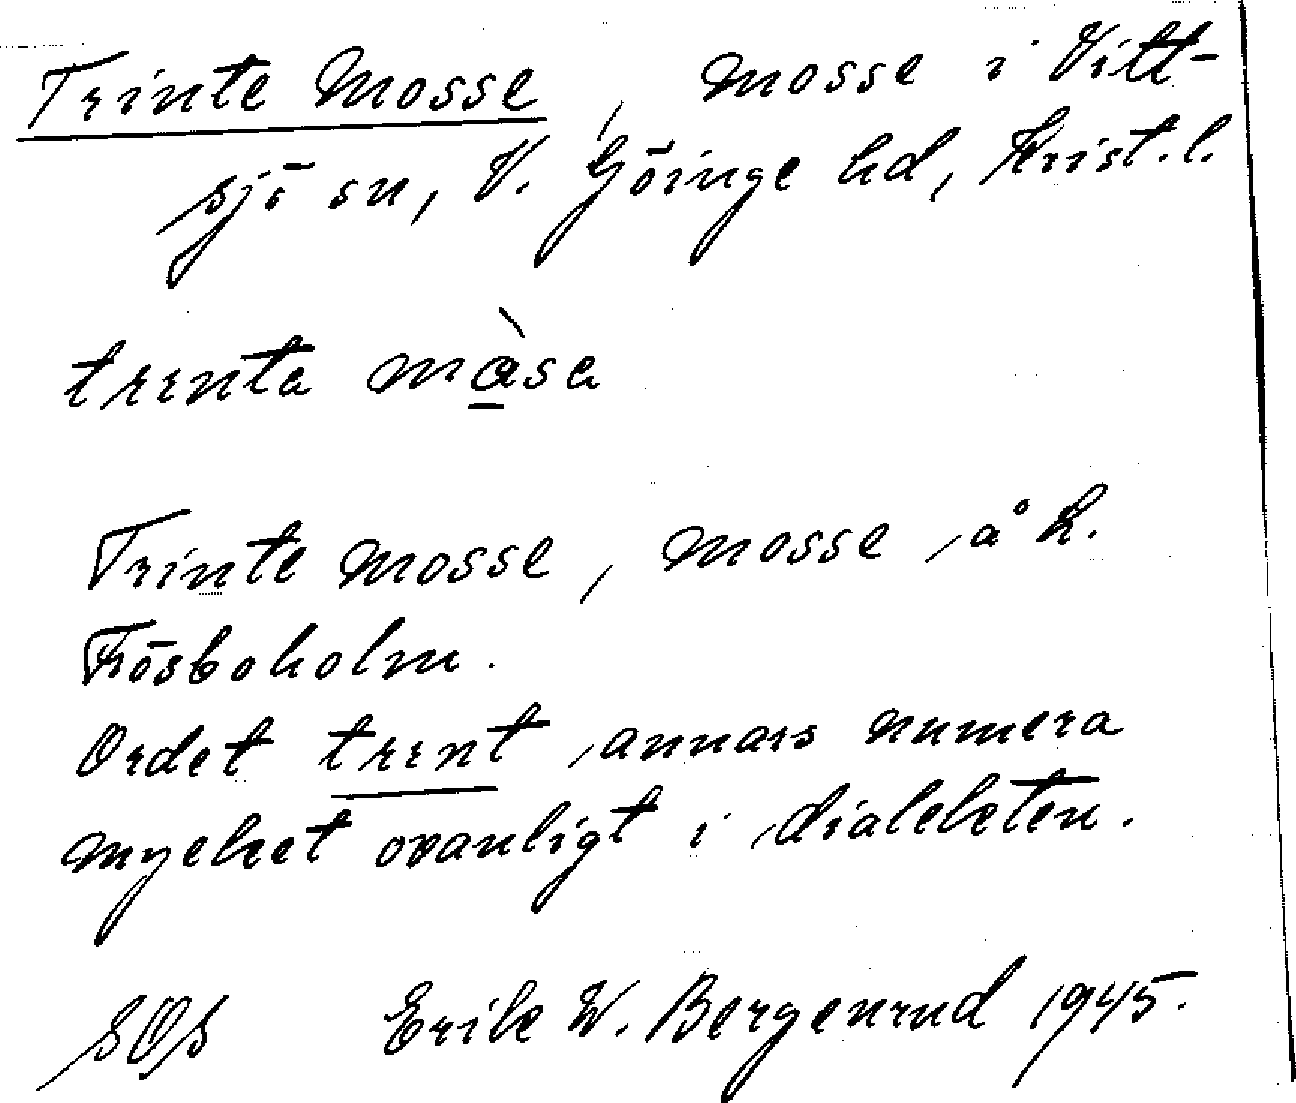 Trinte Mosse, mosse i Vitt-
sjö sn, V. Göinge hd, Krist.l.
trenta màsa
Trinte mosse, mosse å h.
Frösboholm.
Ordet trent annars numera
mycket ovanligt i dialekten.
SOS Erik W. Bergenrud 1945.